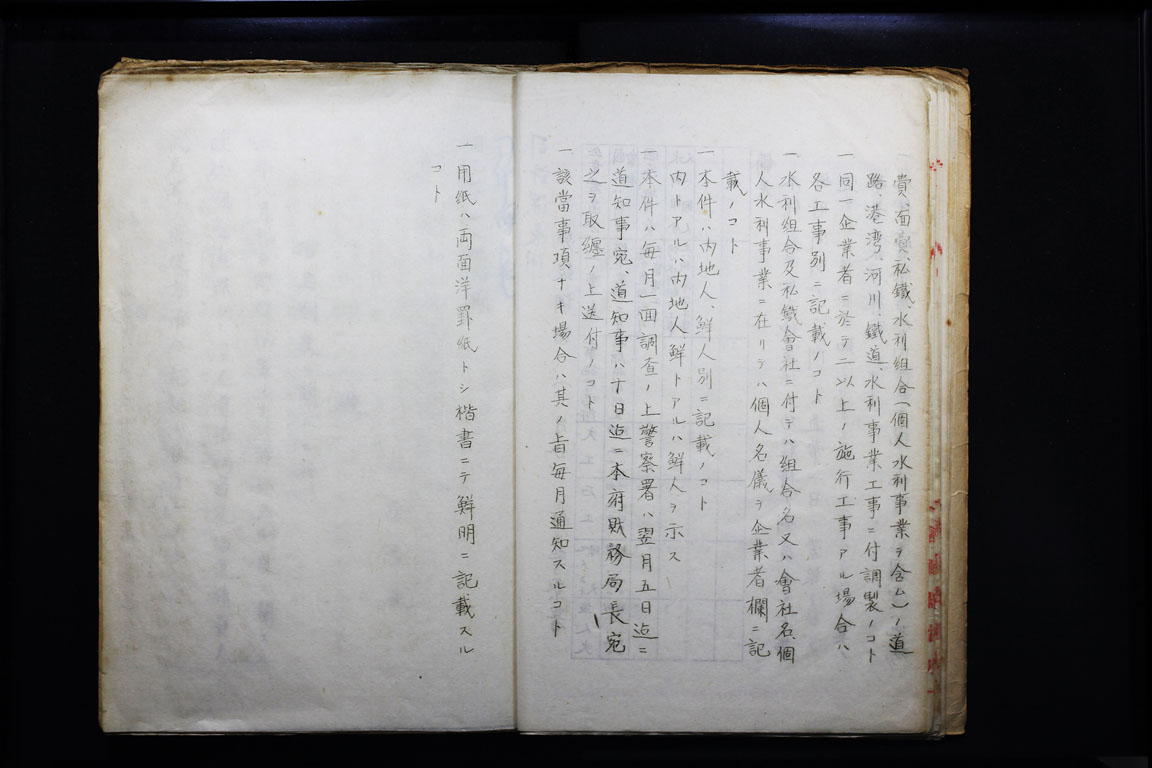 費、面費、私鐵、水利組合(個人水利事業ヲ含ム)ノ道
路、港湾、河川、鐵道、水利事業工事ニ付調製ノコト
一同一企業者ニ於テ二以上ノ施行工事アル場合ハ
各工事別ニ記載ノコト
一水利組合及私鐵會社ニ付テハ組合名又ハ會社名、個
人水利事業ニ在リテハ個人名儀ヲ企業者欄ニ記
載ノコト
一本件ハ内地人、鮮人別ニ記載ノコト
内トアルハ内地人、鮮トアルハ鮮人ヲ示ス
一本件ハ毎月一回調査ノ上警察署ハ翌月五日迄ニ
道知事宛、道知事ハ十日迄ニ本府財務局長宛
之ヲ取纏ノ上送付ノコト
一該當事項ナキ場合ハ其ノ旨毎月通知スルコト
一用紙ハ両面洋罫紙トシ楷書ニテ鮮明ニ記載スル
コト